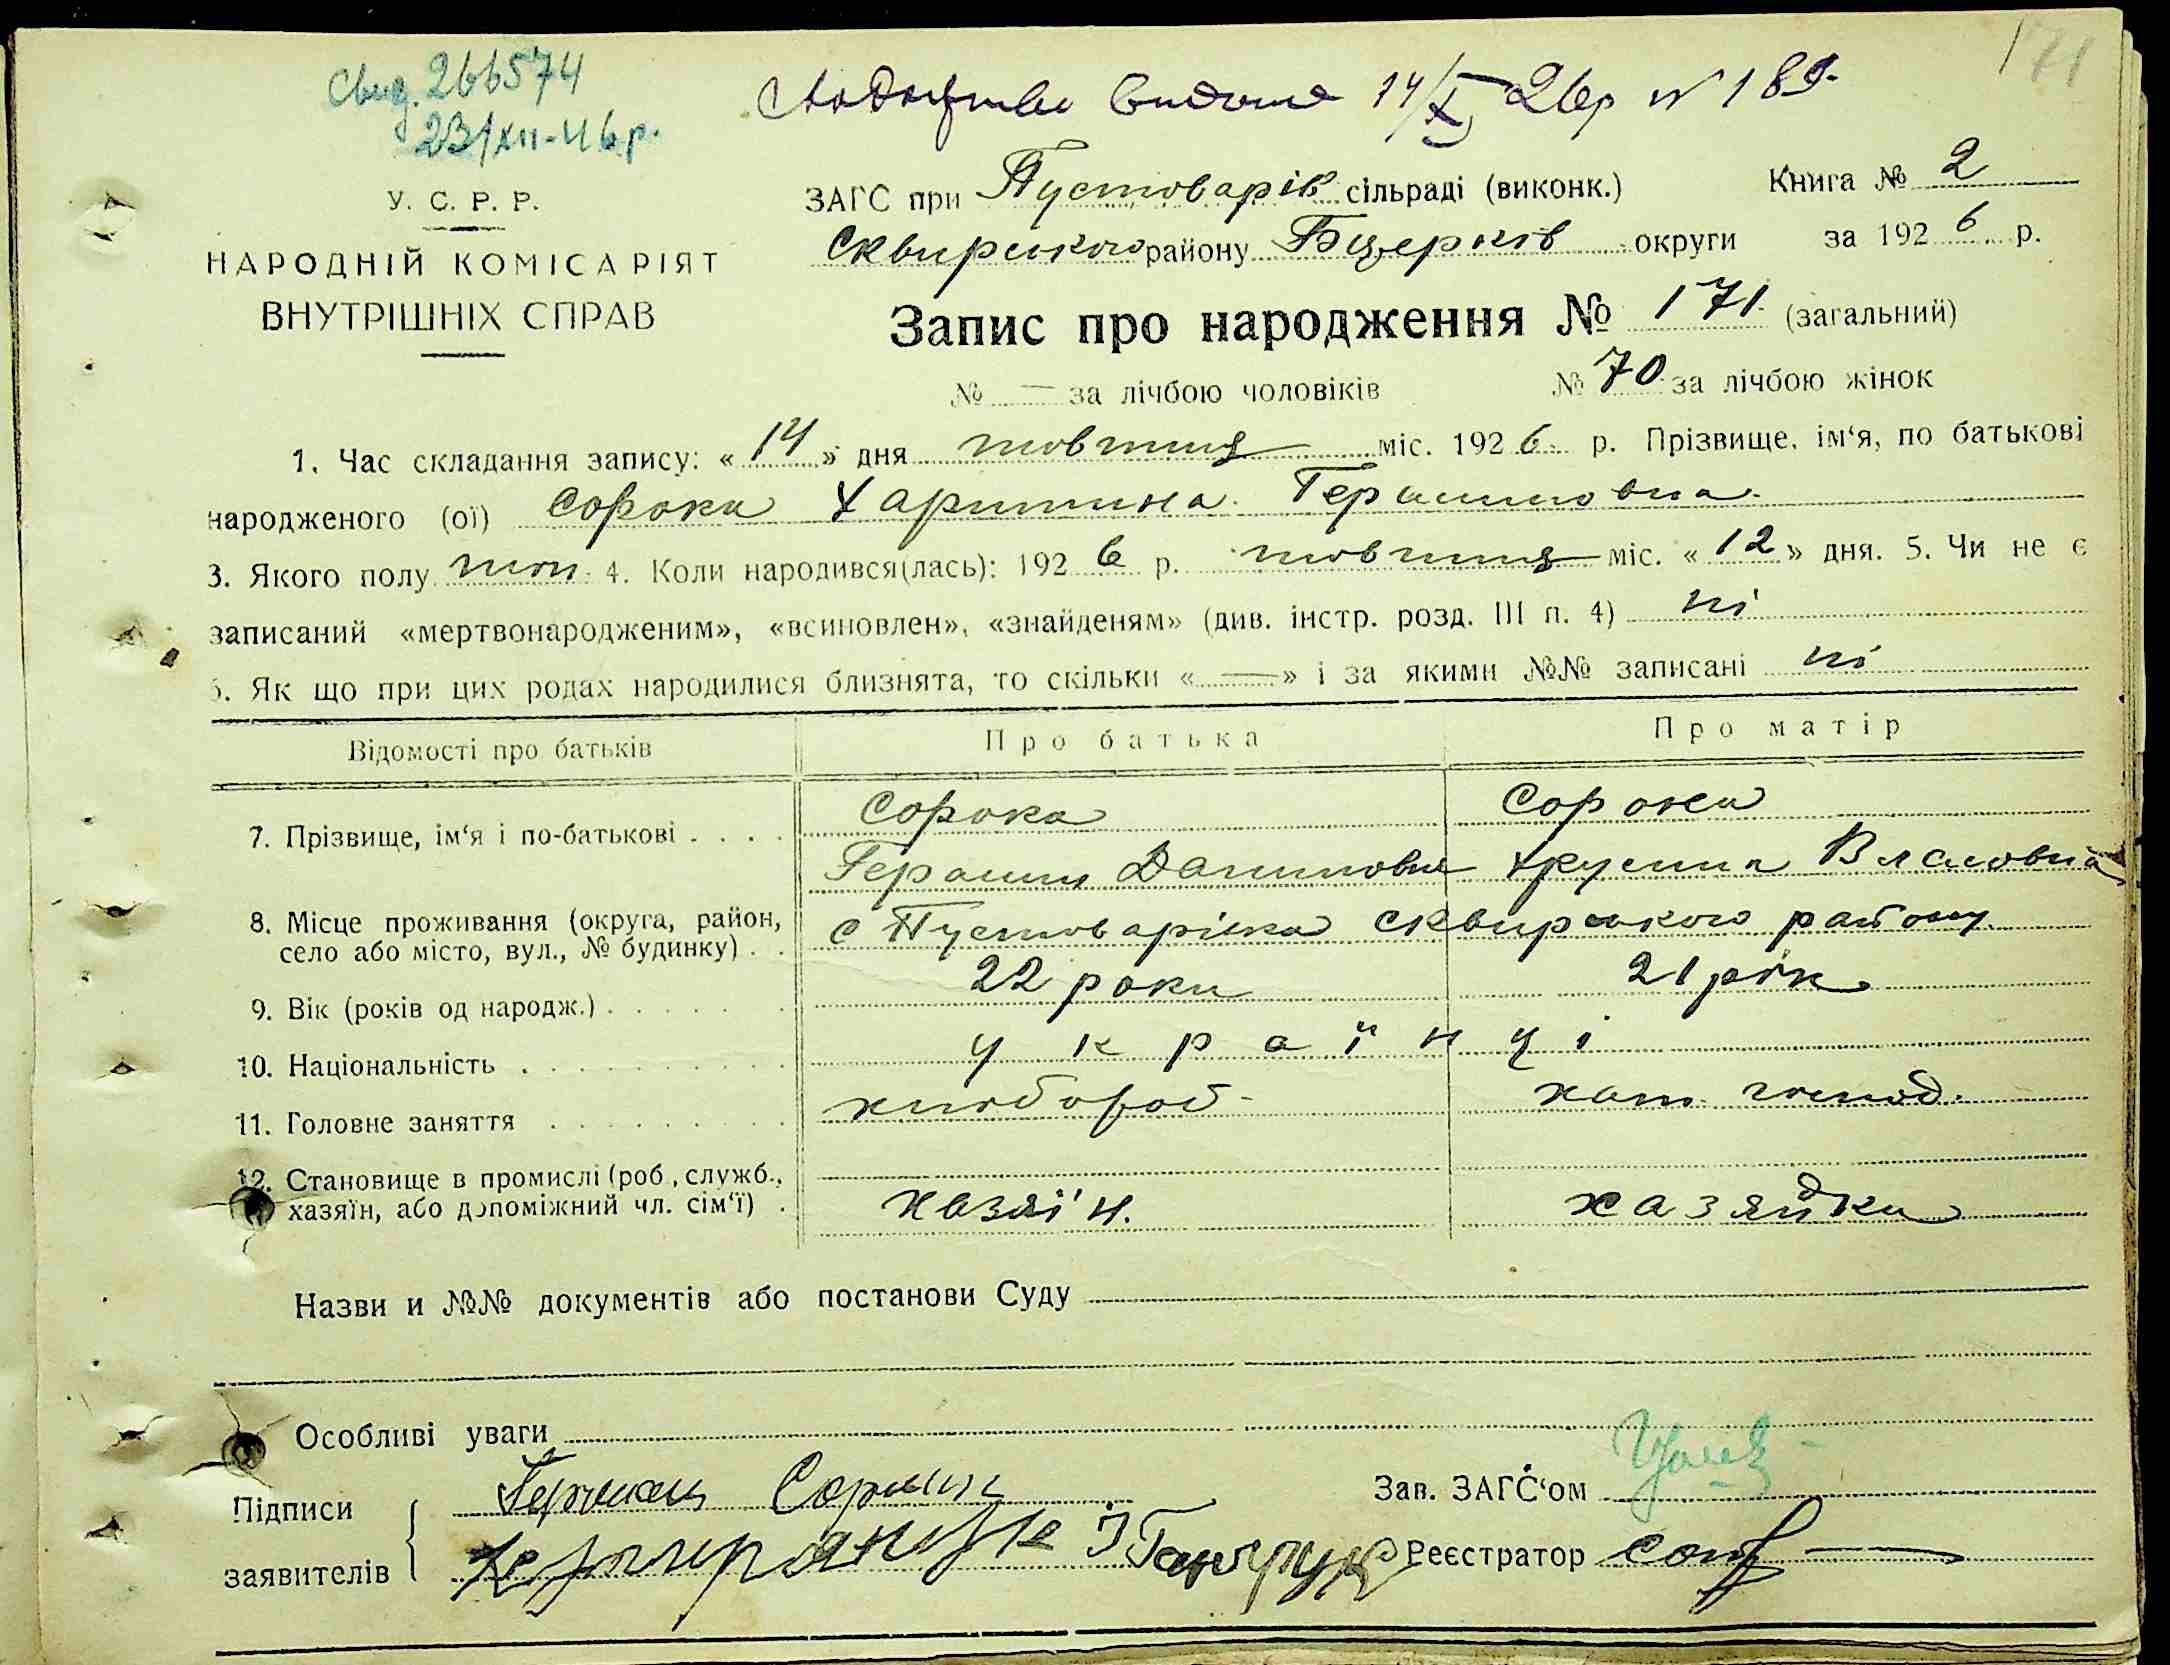 171
Свид. 266574
23/XII-46р.
видано 14/X 26р N 189
У. С. Р. Р.
НАРОДНІЙ КОМІСАРІЯТ
ВНУТРІШНІХ СПРАВ
ЗАГС при Пустоварік сільраді (виконк.) Книга № 2
Сквирського району Бцерків округи за 1926 р.
Запис про народження № 171 (загальний)
№ — за лічбою чоловіків № 70 за лічбою жінок
1. Час складання запису: «14» дня жовтня міс. 1926 р. Прізвище, ім'я, по батькові
народженого (ої) Сорока Харитина Герасимовна.
3. Якого полу жін. 4. Коли народився(лась): 1926 р. жовтня міс. «12» дня. 5. Чи не є
записаний «мертвонародженим», «всиновлен», «знайденям» (див. інстр. розд. III п. 4) ні
6. Як що при цих родах народилися близнята, то скільки «—» і за якими №№ записані ні
Відомості про батьків Про батька Про матір
7. Прізвище, ім'я і по-батькові . . . . Сорока Сорока
Герасим Данилович Хрусина Власовна
8. Місце проживання (округа, район,
село або місто, вул., № будинку) . . с Пустоварівка Сквирського району
9. Вік (років од народж.) . . . . . . 22 роки 21 рік
10. Національність . . . . . . . . . . українці
11. Головне заняття . . . . . . . . . хлібороб- хат. господ.
12. Становище в промислі (роб., служб.,
хазяїн, або допоміжний чл. сім'ї) . хазяїн. хазяйка
Назви и №№ документів або постанови Суду
Особливі уваги
Підписи Герасим Сорока Зав. ЗАГС'ом
заявителів Реєстратор